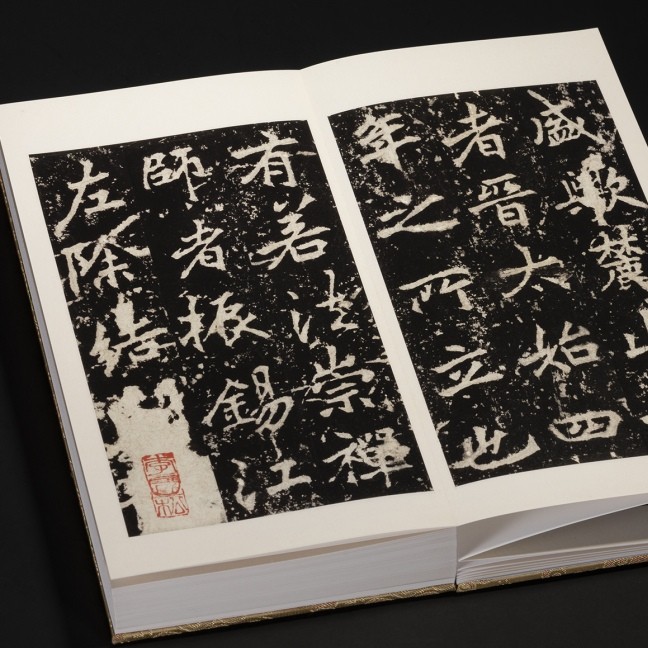 盛歟麓山
者晋太始四
年之所立也
有若法崇禪
師者振錫江
左除結